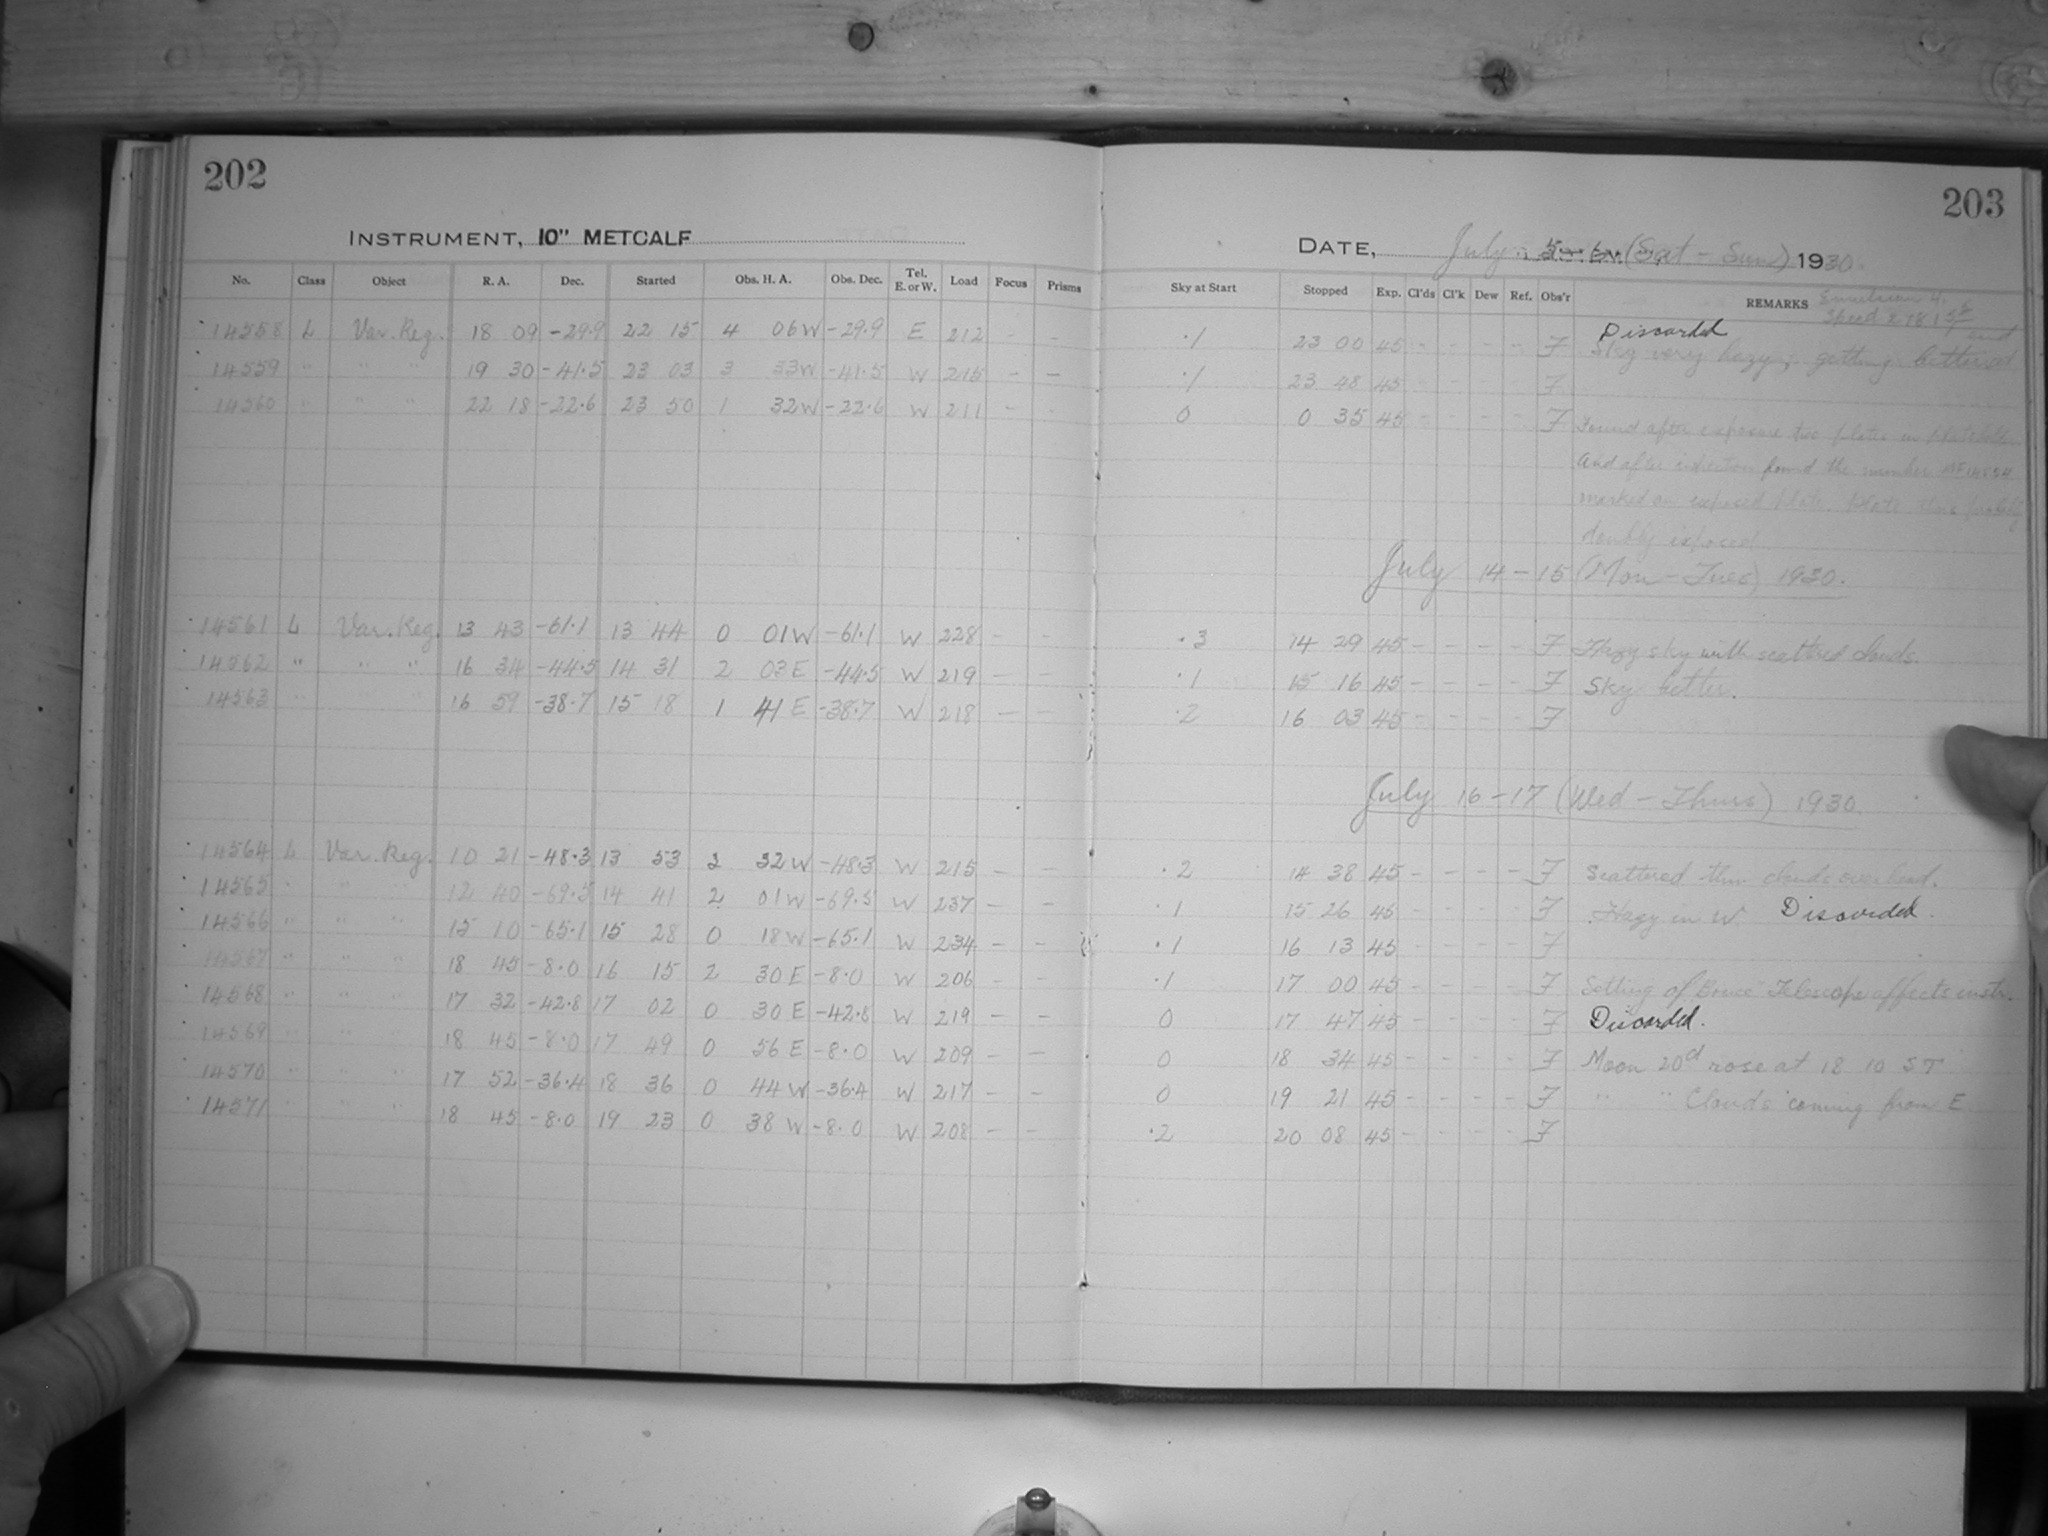 202
203
INSTRUMENT, 10" METCALF
DATE, July 5-6, (Sat - Sun) 1930.
No. Class Object R. A. Dec. Started Obs. H. A. Obs. Dec. Tel. E. or W. Load Focus Prisms Sky at Start Stopped Exp. Cl'ds Cl'k Dew Ref. Obs'r REMARKS
Emulsion 4.
Speed
Discarded
14558 L Var. Reg. 18 09 -29.9 22 15 4 06 W -29.9 E 212 - - .1 23 00 45 - - - - F Sky very hazy; getting better
14559 " " " 19 30 -41.5 23 03 3 33 W -41.5 W 215 - - .1 23 48 45 - - - - F
14560 " " " 22 18 -22.6 23 50 1 32 W -22.6 W 211 - - 0 0 35 45 - - - - F Found after exposure two plates in
And after found the number
marked on exposed plate. Plate thus probably
doubly exposed
July 14-15 (Mon-Tues) 1930.
14561 L Var. Reg. 13 43 -61.1 13 44 0 01 W -61.1 W 228 - - .3 14 29 45 - - - - F Hazy sky with scattered clouds.
14562 " " " 16 34 -44.5 14 31 2 03 E -44.5 W 219 - - .1 15 16 45 - - - - F Sky better.
14563 " " " 16 59 -38.7 15 18 1 41 E -38.7 W 218 - - .2 16 03 45 - - - - F
July 16-17 (Wed-Thurs) 1930.
14564 L Var. Reg. 10 21 -48.3 13 53 2 32 W -48.3 W 215 - - .2 14 38 45 - - - - F Scattered thin clouds overhead.
14565 " " " 12 40 -69.5 14 41 2 01 W -69.5 W 237 - - .1 15 26 45 - - - - F Hazy in W. Discarded.
14566 " " " 15 10 -65.1 15 28 0 18 W -65.1 W 234 - - .1 16 13 45 - - - - F
14567 " " " 18 45 -8.0 16 15 2 30 E -8.0 W 206 - - .1 17 00 45 - - - - F Setting of Bruce Telescope affects instr.
14568 " " " 17 32 -42.8 17 02 0 30 E -42.8 W 219 - - 0 17 47 45 - - - - F Discarded.
14569 " " " 18 45 -8.0 17 49 0 56 E -8.0 W 209 - - 0 18 34 45 - - - - F Moon 20d rose at 18 10 ST
14570 " " " 17 52 -36.4 18 36 0 44 W -36.4 W 217 - - 0 19 21 45 - - - - F " " Clouds coming from E
14571 " " " 18 45 -8.0 19 23 0 38 W -8.0 W 208 - - .2 20 08 45 - - - - F